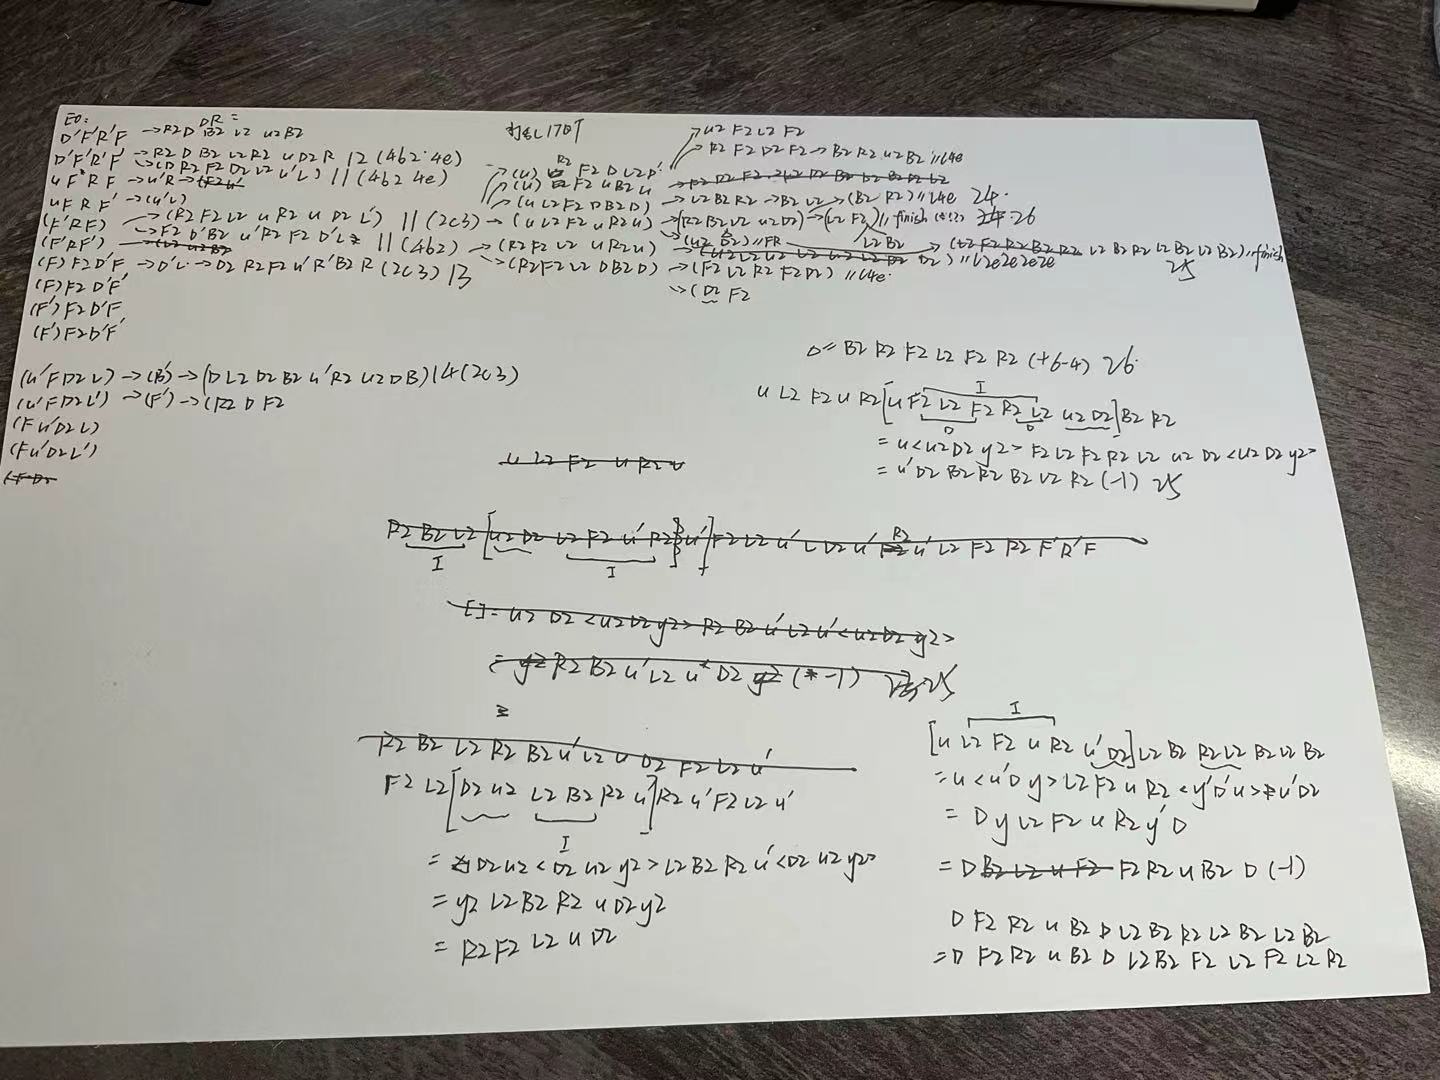 EO:
DR =
D'F'R'F → R2D B2 L2 U2B2
D'F'R'F' → R2 D B2 L2R2 U D2R 12 (4b2·4e)
→(D R2 F2 D2 L2 U'L) 11 (4b2 4e)
U F' R F → U'R →
U F R F' → (U'L)
(F'RF) → (R2 F2 L2 U R2 U D2 L') 11 (2c3) → (U L2 F2 U R2 U)
→ F2 D'B2 U'R2 F2 D'L 11 (4b2) → (R2F2 L2 U R2U)
(F'RF')
(F) F2D'F → D'L → D2 R2 F2 U'R'B2 R (2c3) 13
→(R2F2 L2 DB2D) → (F2 L2 R2 F2D2) //L4e
→(D2 F2
(F) F2 D'F'
(F') F2D'F
(F') F2D'F'
打乱170个
(U) R2 F2 D L2D'
(U) F2 U B2 U
(U L2F2 DB2D) → L2B2R2 → B2 L2 → (B2 R2) //L4e 24
U2 F2 L2 F2
R2 F2 D2 F2 → B2 R2 U2 B2 //L4e
→(R2 B2 L2 U2D2) → (L2 F2) // finish 26
→(U2 B2) //FR
L2 B2
D2) //L2e2e2e2e
L2 B2 R2 L2 B2 L2 B2) // finish
25
(U'F D2 L) → (B') → (D L2 D2 B2 U'R2 U2 DB) 14 (2c3)
(U'F D2L') → (F') → (R2 D F2
(F U'D2 L)
(F U'D2L')
(F D2
D = B2 R2 F2 L2 F2 R2 (+6-4) 26
I
U L2 F2 U R2 [U F2 L2 F2 R2 L2 U2 D2] B2 R2
D D
= U <U2 D2 y2> F2 L2 F2 R2 L2 U2 D2 <U2 D2 y2>
= U' D2 B2 R2 B2 L2 R2 (-1) 25
U L2 F2 U R2 U
R2 B2 L2 [U2 D2 L2 F2 U' R2 U'] F2 L2 U' L D2 U' R2 U' L2 F2 R2 F'R'F
I I
[] = U2 D2 <U2 D2 y2> R2 B2 U' L2 U' <U2 D2 y2>
= y2 R2 B2 U' L2 U D2 y2 (-1) 25
R2 B2 L2 R2 B2 U' L2 U D2 F2 L2 U'
F2 L2 [D2 U2 L2 B2 R2 U'] R2 U' F2 L2 U'
I
= D2 U2 <D2 U2 y2> L2 B2 R2 U' <D2 U2 y2>
= y2 L2 B2 R2 U D2 y2
= R2 F2 L2 U D2
I
[U L2 F2 U R2 U' D2] L2 B2 R2 L2 B2 L2 B2
= U <U'D y> L2 F2 U R2 <y'D'U> U'D2
= D y L2 F2 U R2 y' D
= D B2 L2 U F2 F2 R2 U B2 D (-1)
D F2 R2 U B2 D L2 B2 R2 L2 B2 L2 B2
= D F2 R2 U B2 D L2 B2 F2 L2 F2 L2 R2